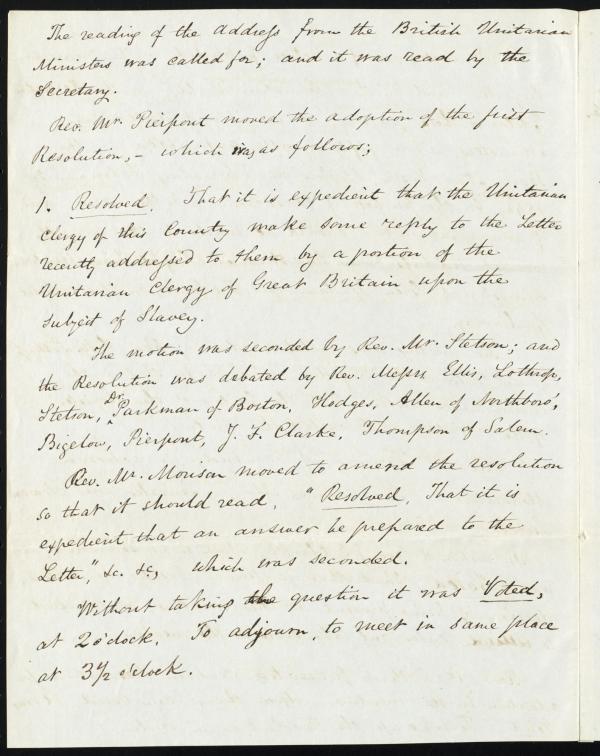 The reading of the Address from the British Unitarian
Ministers was called for; and it was read by the
Secretary.
Rev. Mr. Pierpont moved the adoption of the first
Resolution, – which was as follows;
1. Resolved. That it is expedient that the Unitarian
Clergy of this Country make some reply to the Letter
recently addressed to them by a portion of the
Unitarian Clergy of Great Britain upon the
subject of Slavery.
The motion was seconded by Rev. Mr. Stetson; and
the Resolution was debated by Rev. Messrs Ellis, Lothrop,
Stetson, Dr. Parkman of Boston, Hodges, Allen of Northboro',
Bigelow, Pierpont, J. F. Clarke, Thompson of Salem.
Rev. Mr. Morison moved to amend the resolution
so that it should read, "Resolved, That it is
expedient that an answer be prepared to the
Letter," &c. &c, which was seconded.
Without taking the question it was Voted,
at 2 o'clock, To adjourn, to meet in same place
at 3 1/2 o'clock.